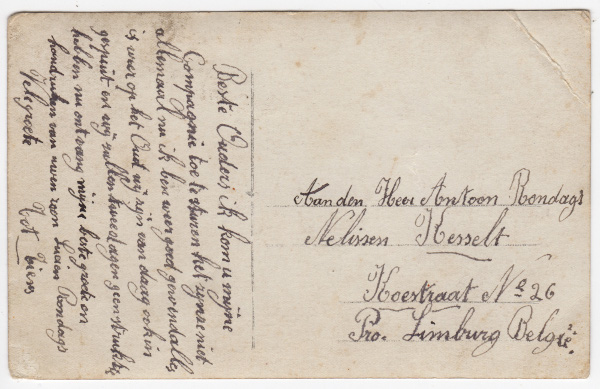 Beste Ouders ik kom u mijne
Compagnie toe te sturen het zijn ze niet
allemaal nu ik ben weer goed gewend alles
is weer op het Oud wij zijn van daag enkin
gespuint en wij zullen twee dagen geen
hebben nu ontvang mijne beste groeten en
handrukken van uwen zoon Rondags
Velegroete Tot Ziens
Aan den Heer Antoon Rondags
Nelissen Hesselt
Koestraat No 26
Pro. Limburg België.